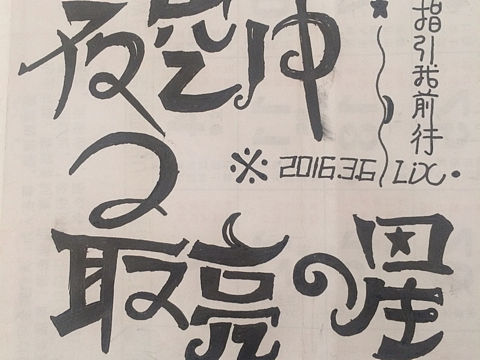 夜空中
指引我前行
※ 2016.3.6 LiX.
最亮的星